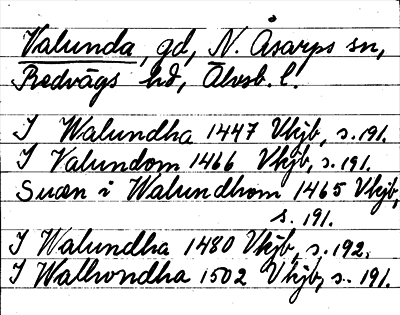 Valunda, gd, N. Åsarps sn,
Redvägs hd, Älvsb. l.
I Walundha 1447 Vkjb, s. 191.
I Valundom 1466 Vkjb, s. 191.
Suæn i Walundhom 1465 Vkjb,
s. 191.
I Walundha 1480 Vkjb, s. 192.
I Walhondha 1502 Vkjb, s. 191.